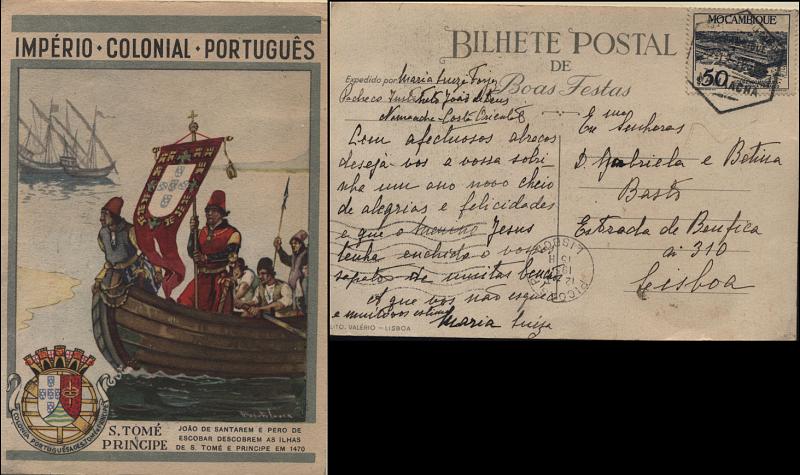 IMPÉRIO · COLONIAL · PORTUGUÊS
S. TOMÉ
PRINCIPE
JOÃO DE SANTAREM E PERO DE
ESCOBAR DESCOBREM AS ILHAS
DE S. TOMÉ E PRINCIPE EM 1470
COLONIA PORTUGUESA DE S. TOMÉ E PRINCIPE
BILHETE POSTAL
DE
Boas Festas
MOÇAMBIQUE
$50
Expedido por Maria Luiza
Pacheco Instituto João de Deus
Namaacha Costa Oriental
Com afectuosos abraços
deseja-vos a vossa sobri
nha um ano novo cheio
de alegrias e felicidades
e que o menino Jesus
tenha enchido o vosso
sapato de muitas
a que vos não esquece
e muito vos estima
Maria Luiza
Ex mas
Senhoras
D. Gabriela e Betina
Basto
Estrada de Benfica
nº 310
Lisboa
LISBOA
LITO. VALÉRIO - LISBOA